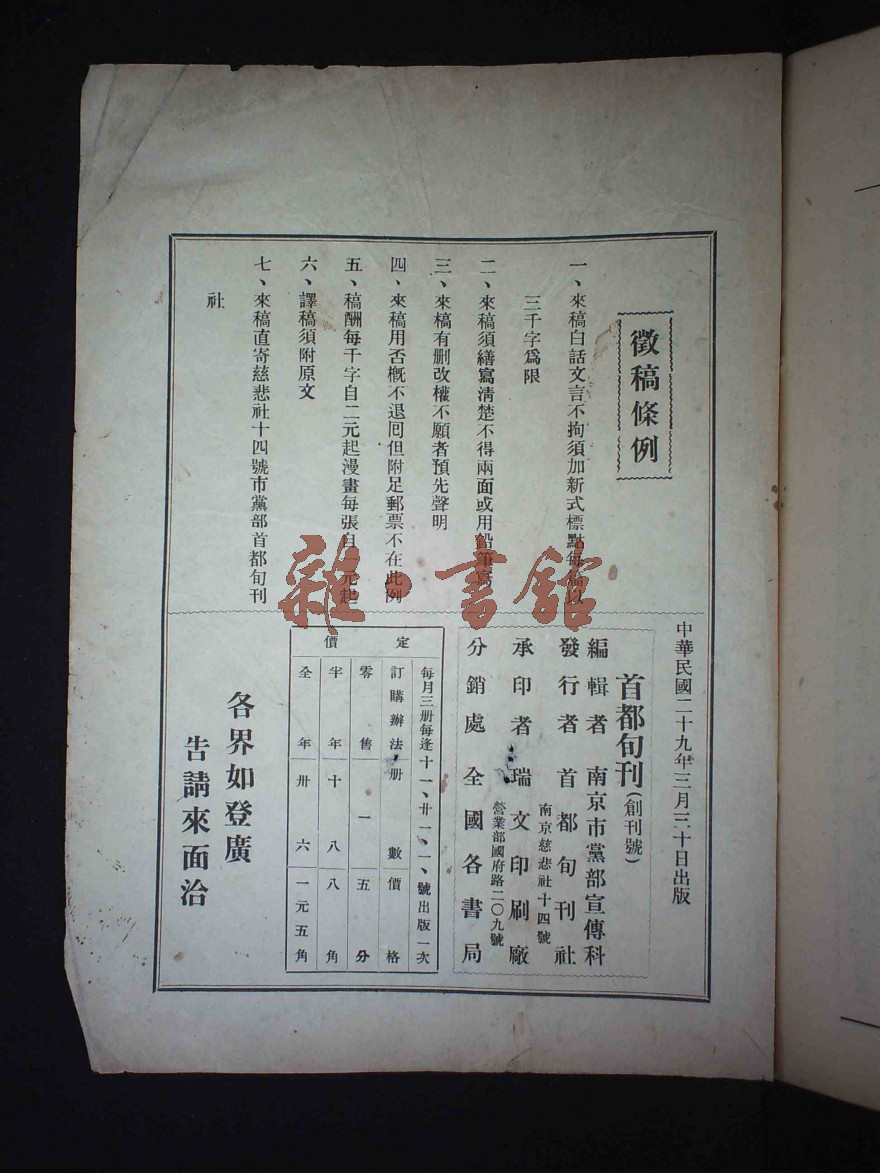 徵稿條例
一、來稿白話文言不拘須加新式標點每稿以
三千字爲限
二、來稿須繕寫清楚不得兩面或用鉛筆寫
三、來槁有删改權不願者預先聲明
四、來稿用否概不退囘但附足郵票不在此例
五、稿酬每千字自二元起漫畫每張自一元起
六、譯稿須附原文
七、來稿直寄慈悲社十四號市黨部首都旬刊
社
中華民國二十九年三月三十日出版
首都旬刊(創刊號)
編輯者 南京市黨部宣傳科
發行者 首都旬刊社
南京慈悲社十四號
承印者 瑞文印刷廠
營業部國府路二〇九號
分銷處 全國各書局
定價
每月三册每逢十一、廿一、一、號出版一次
訂購辦法 册數 價格
零售 一 五分
半年 十八 八角
全年 卅六 一元五角
各界如登廣
告請來面洽
雜·書館